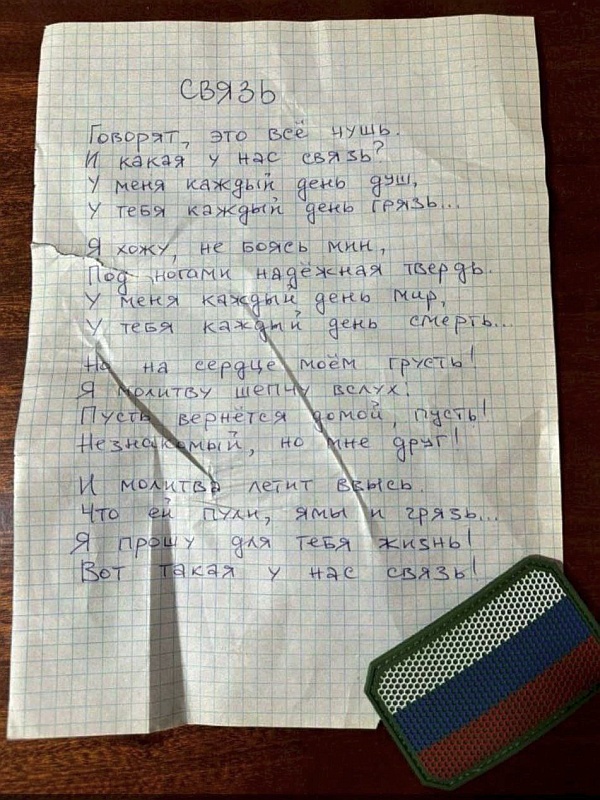 СВЯЗЬ
Говорят, это всё чушь.
И какая у нас связь?
У меня каждый день душ,
У тебя каждый день грязь...
Я хожу, не боясь мин,
Под ногами надёжная твердь.
У меня каждый день мир,
У тебя каждый день смерть...
Но на сердце моём грусть!
Я молитву шепчу вслух:
Пусть вернётся домой, пусть!
Незнакомый, но мне друг!
И молитва летит ввысь.
Что ей пули, ямы и грязь...
Я прошу для тебя жизнь!
Вот такая у нас связь!